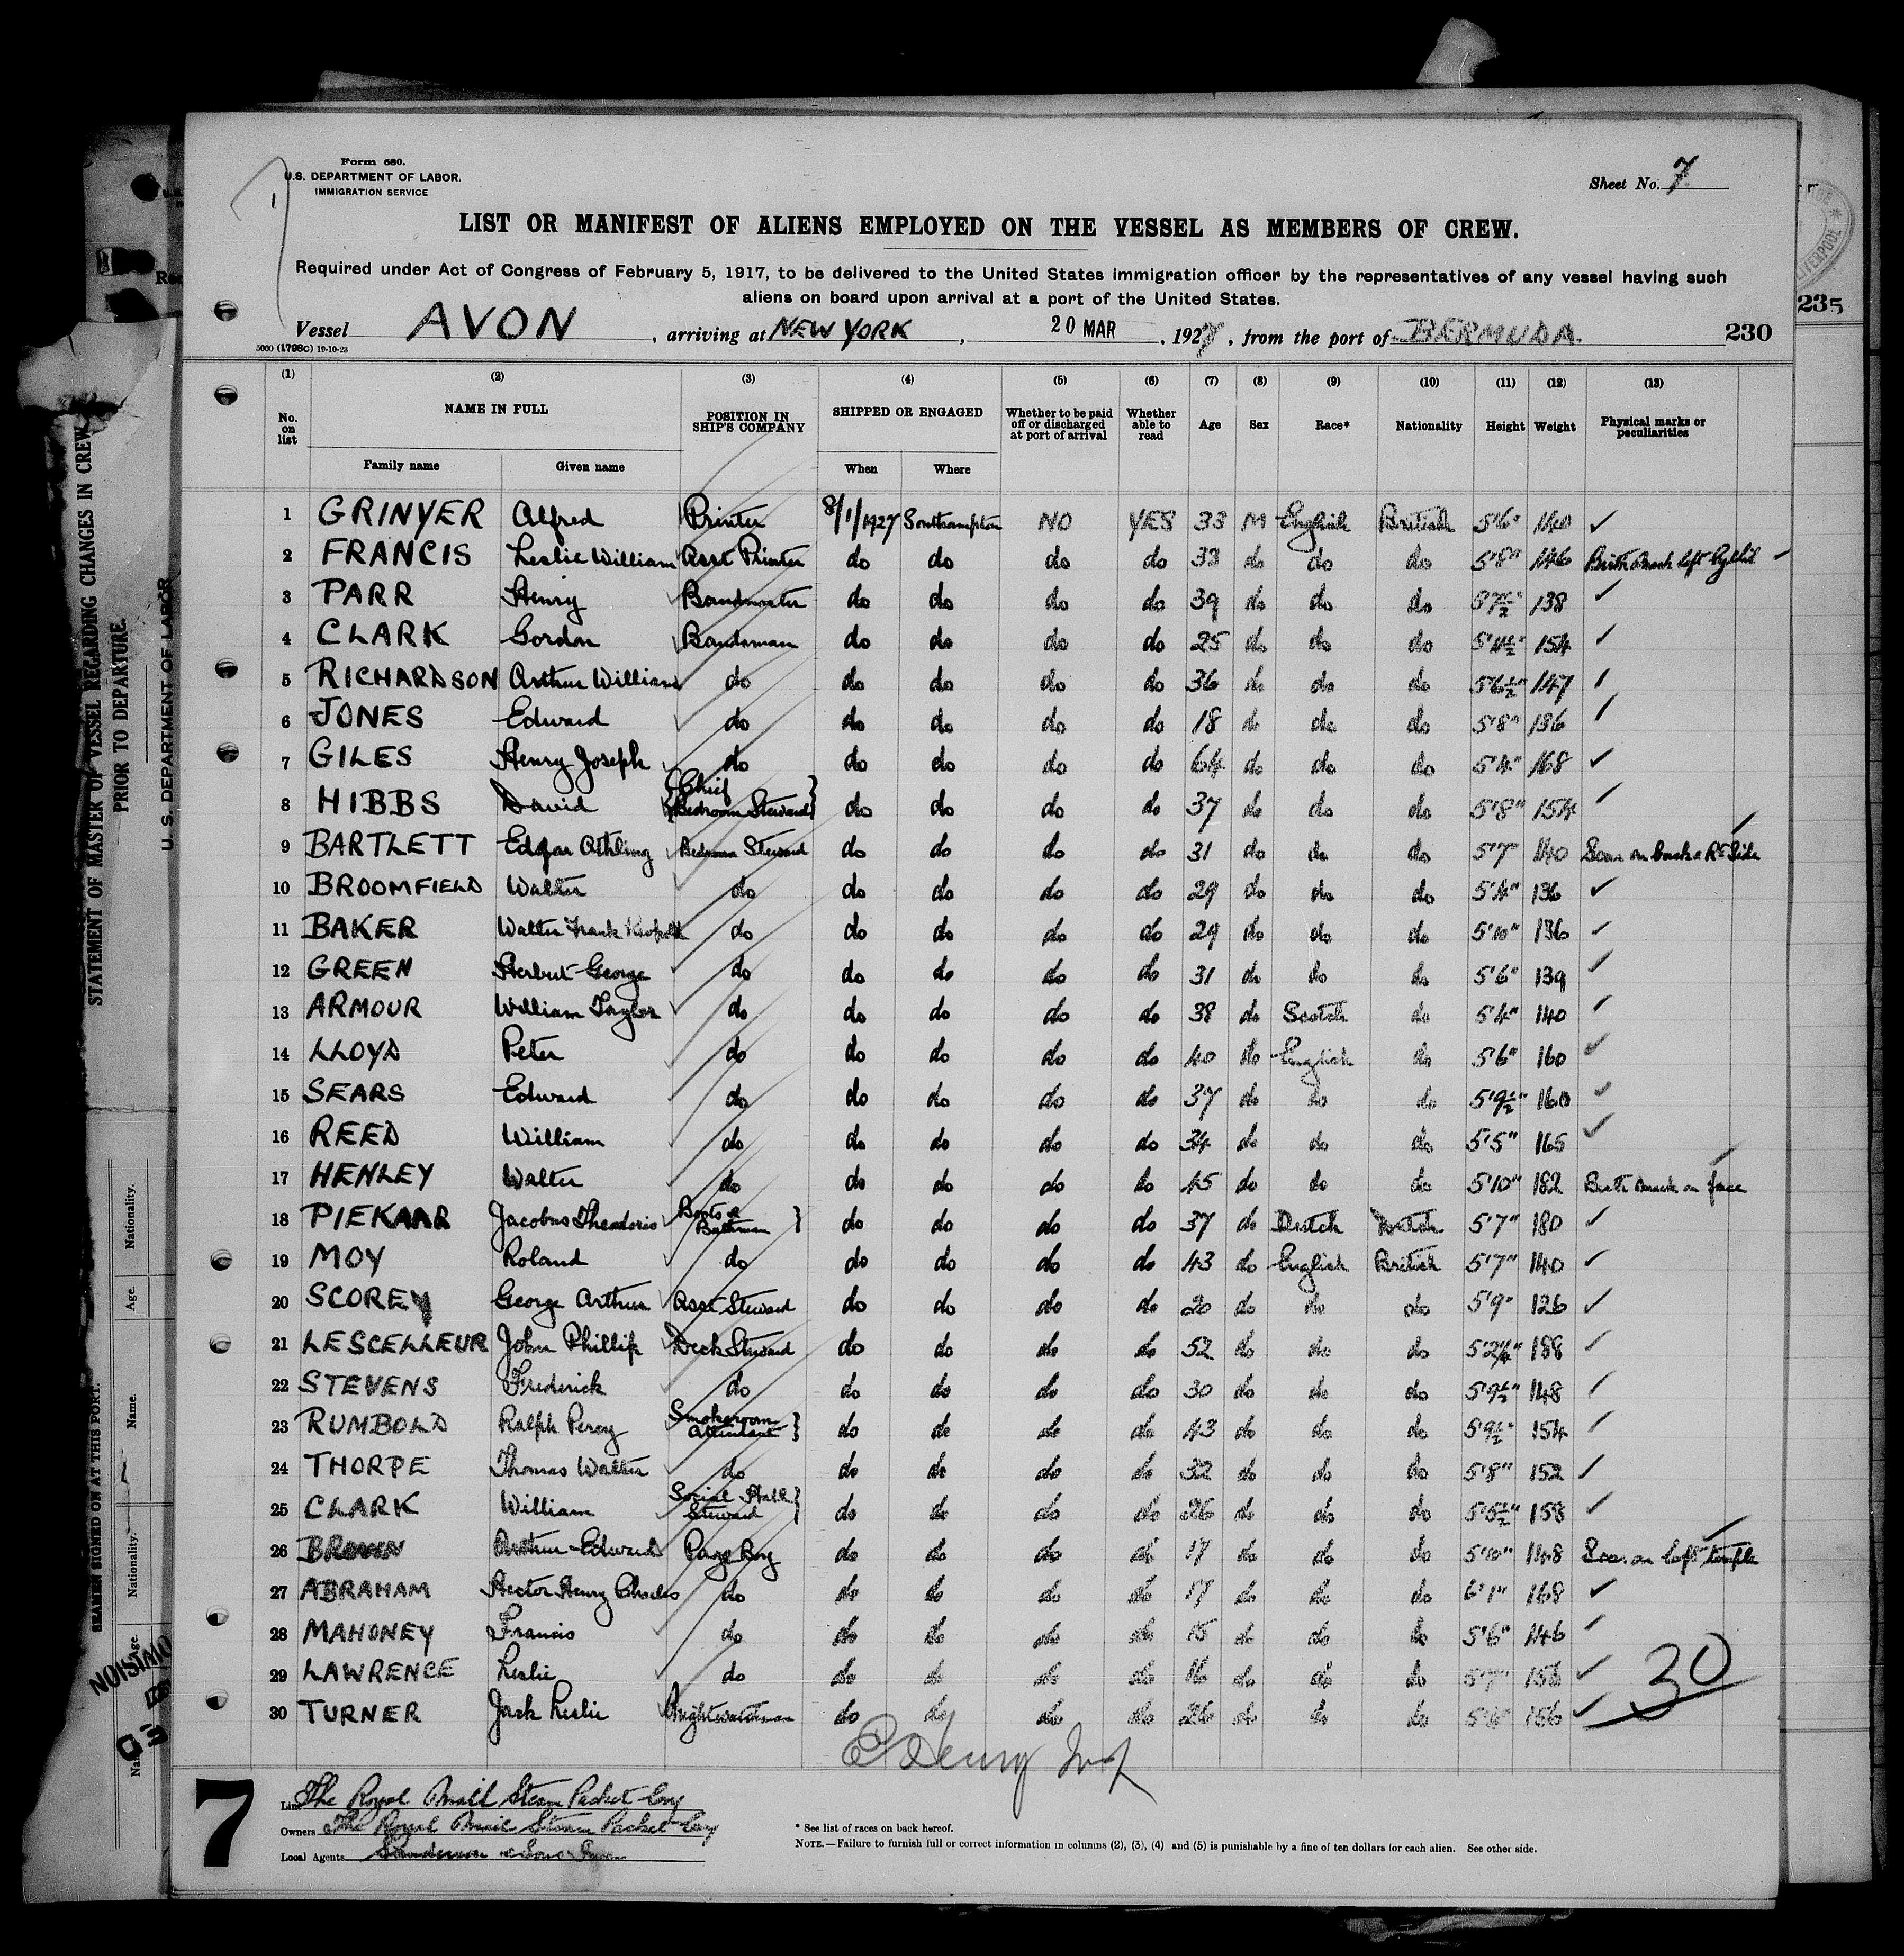 Form 680.
U.S. DEPARTMENT OF LABOR.
IMMIGRATION SERVICE
Sheet No. 7
LIST OR MANIFEST OF ALIENS EMPLOYED ON THE VESSEL AS MEMBERS OF CREW.
Required under Act of Congress of February 5, 1917, to be delivered to the United States immigration officer by the representatives of any vessel having such
aliens on board upon arrival at a port of the United States.
235
Vessel AVON, arriving at NEW YORK, 20 MAR, 1927, from the port of BERMUDA. 230
5000 (1798C) 19-10-23
(1) (2) (3) (4) (5) (6) (7) (8) (9) (10) (11) (12) (13)
No. on list NAME IN FULL POSITION IN SHIP'S COMPANY SHIPPED OR ENGAGED Whether to be paid off or discharged at port of arrival Whether able to read Age Sex Race* Nationality Height Weight Physical marks or peculiarities
Family name Given name When Where
1 GRINYER Alfred Printer 8/1/1927 Southampton NO YES 33 M English British 5'6" 140
2 FRANCIS Leslie William Asst Printer do do do do 33 do do do 5'8" 146 Birth Mark left Eyelid
3 PARR Henry Bandmaster do do do do 39 do do do 5'7½" 138
4 CLARK Gordon Bandsman do do do do 25 do do do 5'11½" 154
5 RICHARDSON Arthur William do do do do do 36 do do do 5'6½" 147
6 JONES Edward do do do do do 18 do do do 5'8" 136
7 GILES Henry Joseph do do do do do 64 do do do 5'4" 168
8 HIBBS David Chief Bedroom Steward do do do do 37 do do do 5'8" 154
9 BARTLETT Edgar Bedroom Steward do do do do 31 do do do 5'7" 140 Scar on back & Rt Side
10 BROOMFIELD Walter do do do do do 29 do do do 5'4" 136
11 BAKER Walter Frank do do do do do 29 do do do 5'10" 136
12 GREEN Herbert George do do do do do 31 do do do 5'6" 139
13 ARMOUR William Taylor do do do do do 38 do Scotch do 5'4" 140
14 LLOYD Peter do do do do do 40 do English do 5'6" 160
15 SEARS Edward do do do do do 37 do do do 5'9½" 160
16 REED William do do do do do 34 do do do 5'5" 165
17 HENLEY Walter do do do do do 45 do do do 5'10" 182 Birth Mark on face
18 PIEKAAR Jacobus Theodoris Boots & Bathman do do do do 37 do Dutch Dutch 5'7" 180
19 MOY Roland do do do do do 43 do English British 5'7" 140
20 SCOREY George Arthur Asst Steward do do do do 20 do do do 5'9" 126
21 LESCELLEUR John Phillip Deck Steward do do do do 52 do do do 5'2¼" 188
22 STEVENS Frederick do do do do do 30 do do do 5'9½" 148
23 RUMBOLD Ralph Percy Smokeroom Attendant do do do do 43 do do do 5'9½" 154
24 THORPE Thomas Walter do do do do do 32 do do do 5'8" 152
25 CLARK William Social Hall Steward do do do do 26 do do do 5'5½" 158
26 BROWN Arthur Edward Page Boy do do do do 17 do do do 5'10" 148 Scar on left temple
27 ABRAHAM Hector Henry Charles do do do do do 17 do do do 6'1" 168
28 MAHONEY Francis do do do do do 15 do do do 5'6" 146
29 LAWRENCE Leslie do do do do do 16 do do do 5'7"
30 TURNER Jack Leslie Nightwatchman do do do do 26 do do do 156
30
7
Line The Royal Mail Steam Packet Coy
Owners The Royal Mail Steam Packet Coy
Local Agents Sanderson & Son
* See list of races on back hereof.
NOTE.—Failure to furnish full or correct information in columns (2), (3), (4) and (5) is punishable by a fine of ten dollars for each alien. See other side.
STATEMENT OF MASTER OF VESSEL REGARDING CHANGES IN CREW
PRIOR TO DEPARTURE.
U. S. DEPARTMENT OF LABOR
SEAMEN SIGNED ON AT THIS PORT.
Nationality.
Age.
Name.
Nationality.
LIVERPOOL